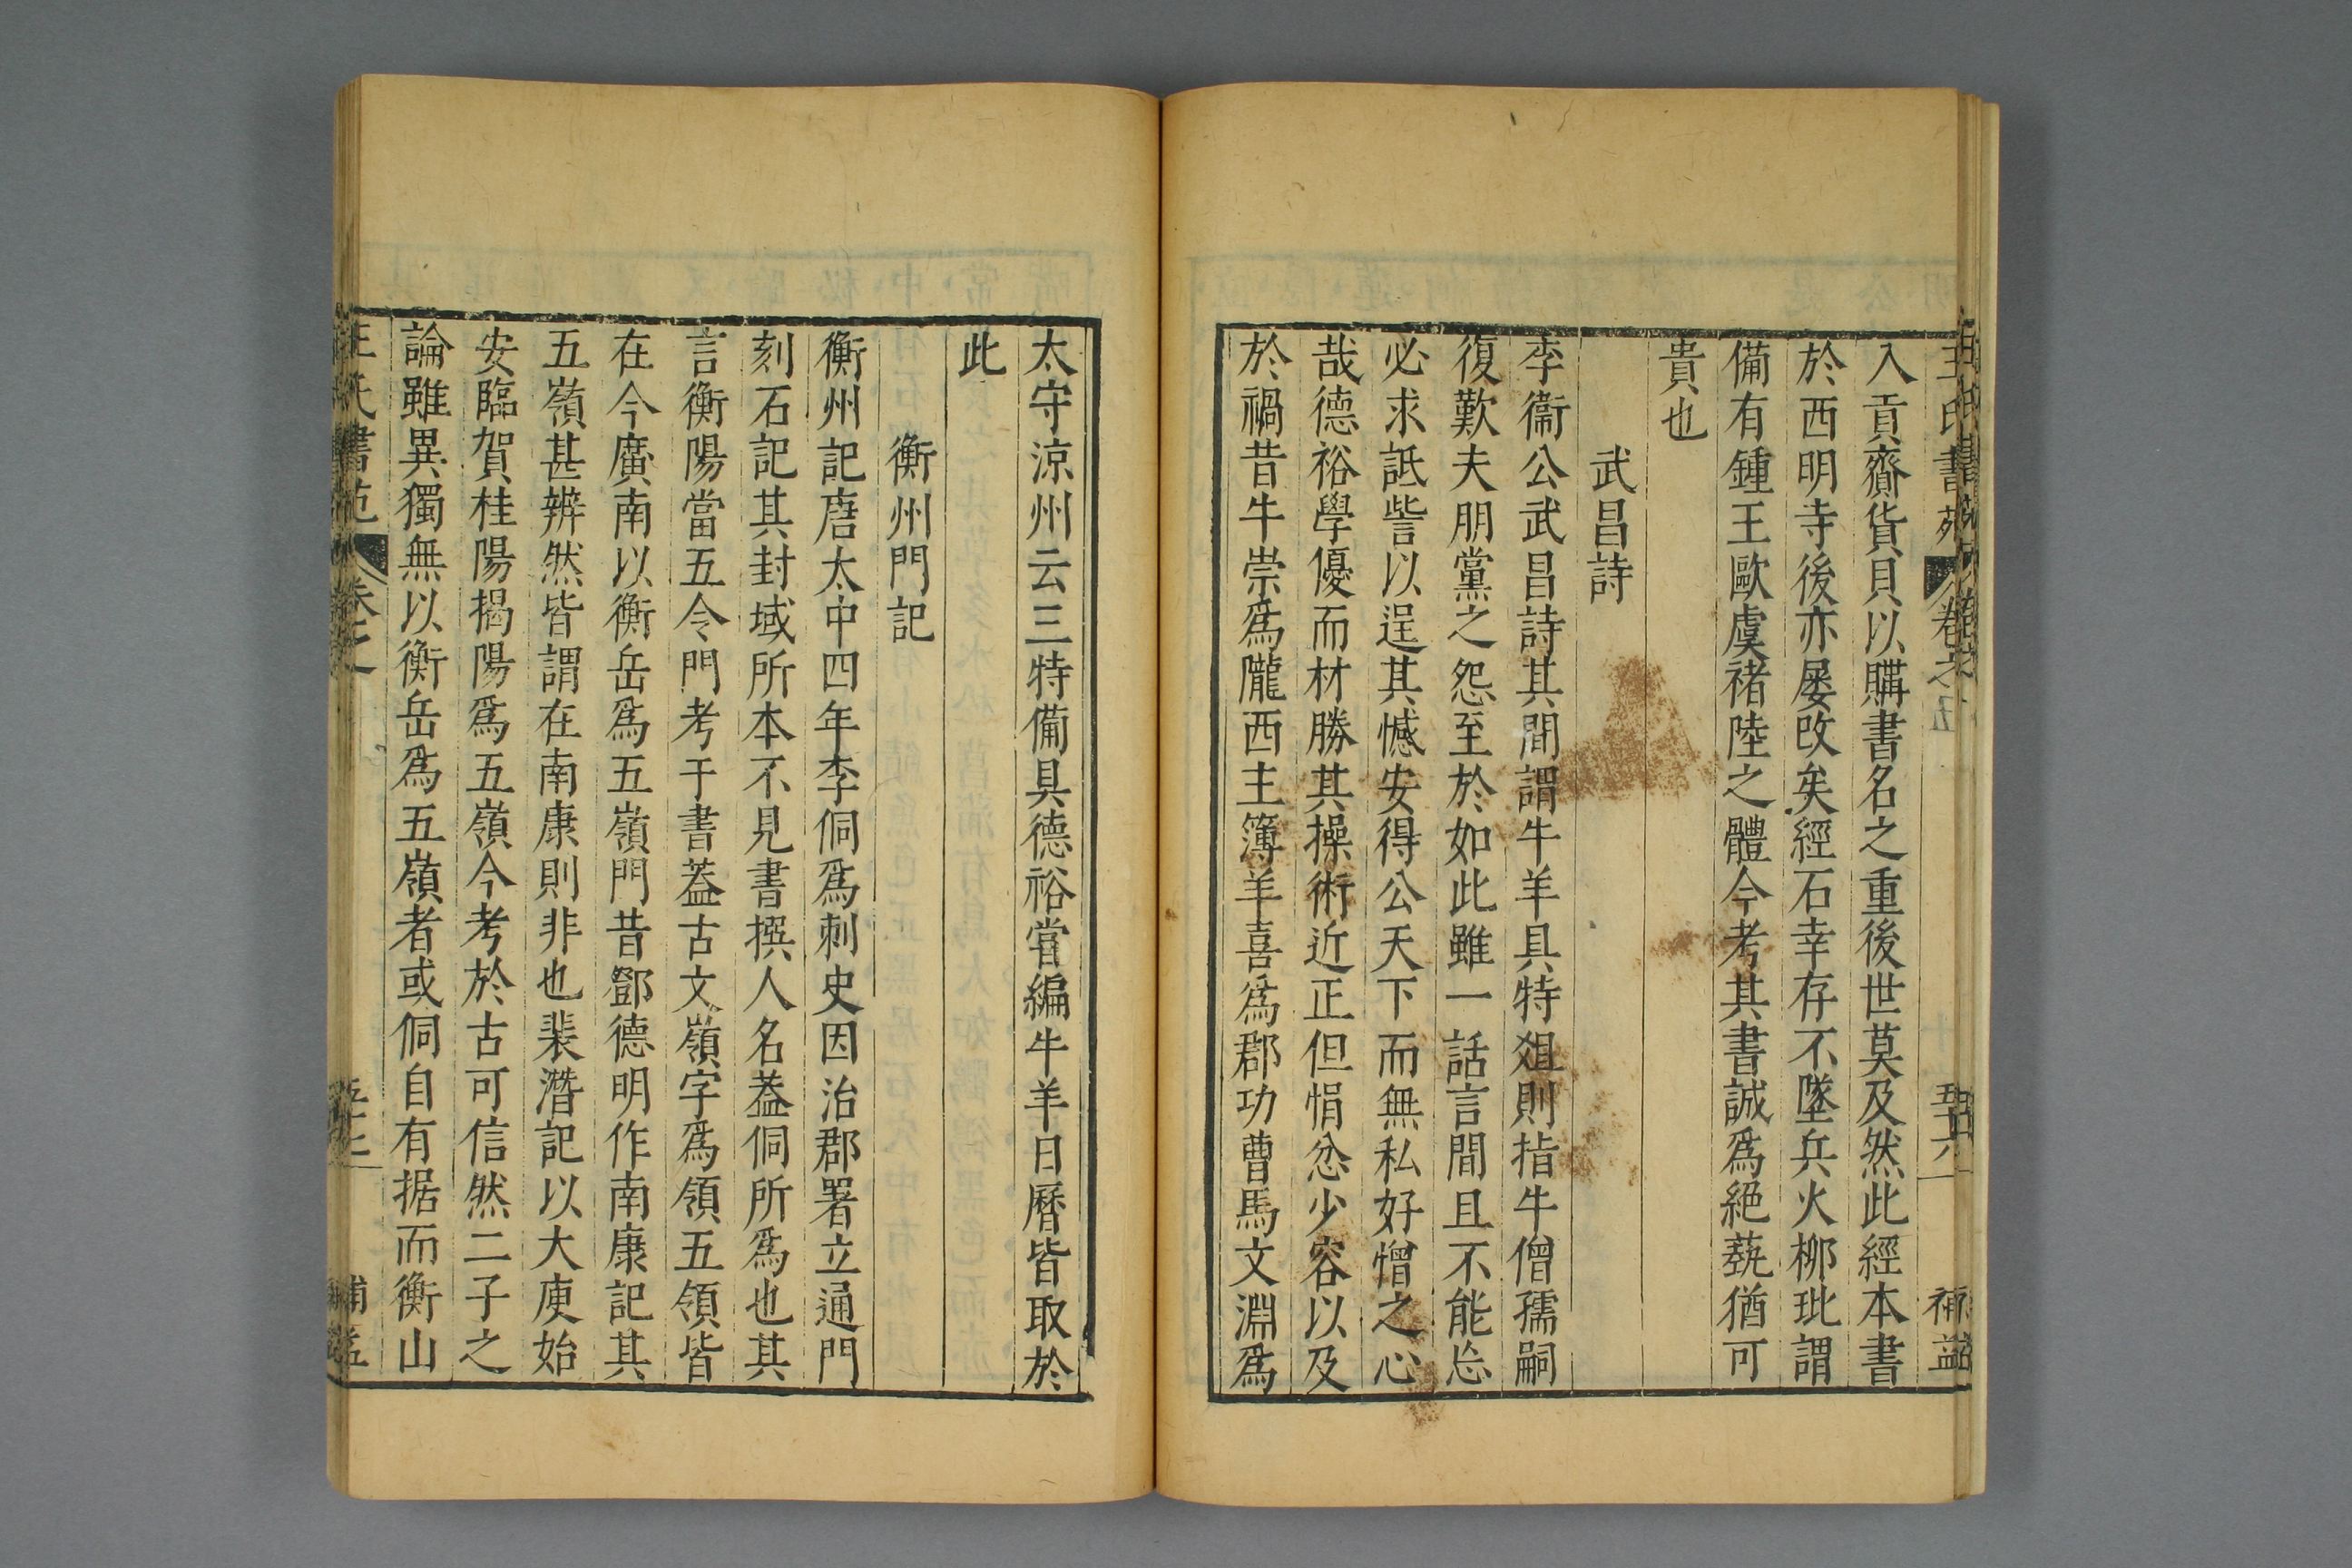 入貢齎貨貝以購書名之重後世莫及然此經本書
於西明寺後亦屡改矣經石幸存不墜兵火柳玭謂
備有鍾王歐虞褚陸之體今考其書誠爲絕蓺猶可
貴也
武昌詩
李衞公武昌詩其間謂牛羊具特爼則指牛僧孺嗣
復歎夫朋黨之怨至於如此雖一話言間且不能忘
必求詆訾以逞其憾安得公天下而無私好憎之心
哉德裕學優而材勝其操術近正但悁忿少容以及
於禍昔牛崇爲隴西主簿羊喜爲郡功曹馬文淵爲
太守涼州云三特備具德裕嘗編牛羊日曆皆取於
此
衡州門記
衡州記唐太中四年李侗爲刺史因治郡署立通門
刻石記其封域所本不見書撰人名葢侗所爲也其
言衡陽當五令門考于書葢古文嶺字爲領五領皆
在今廣南以衡岳爲五嶺門昔鄧德明作南康記其
五嶺甚辨然皆謂在南康則非也裴潛記以大庾始
安臨賀桂陽揭陽爲五嶺今考於古可信然二子之
論雖異獨無以衡岳爲五嶺者或侗自有据而衡山
王氏書苑 卷之五 五十六 補益
王氏書苑 卷之 補益